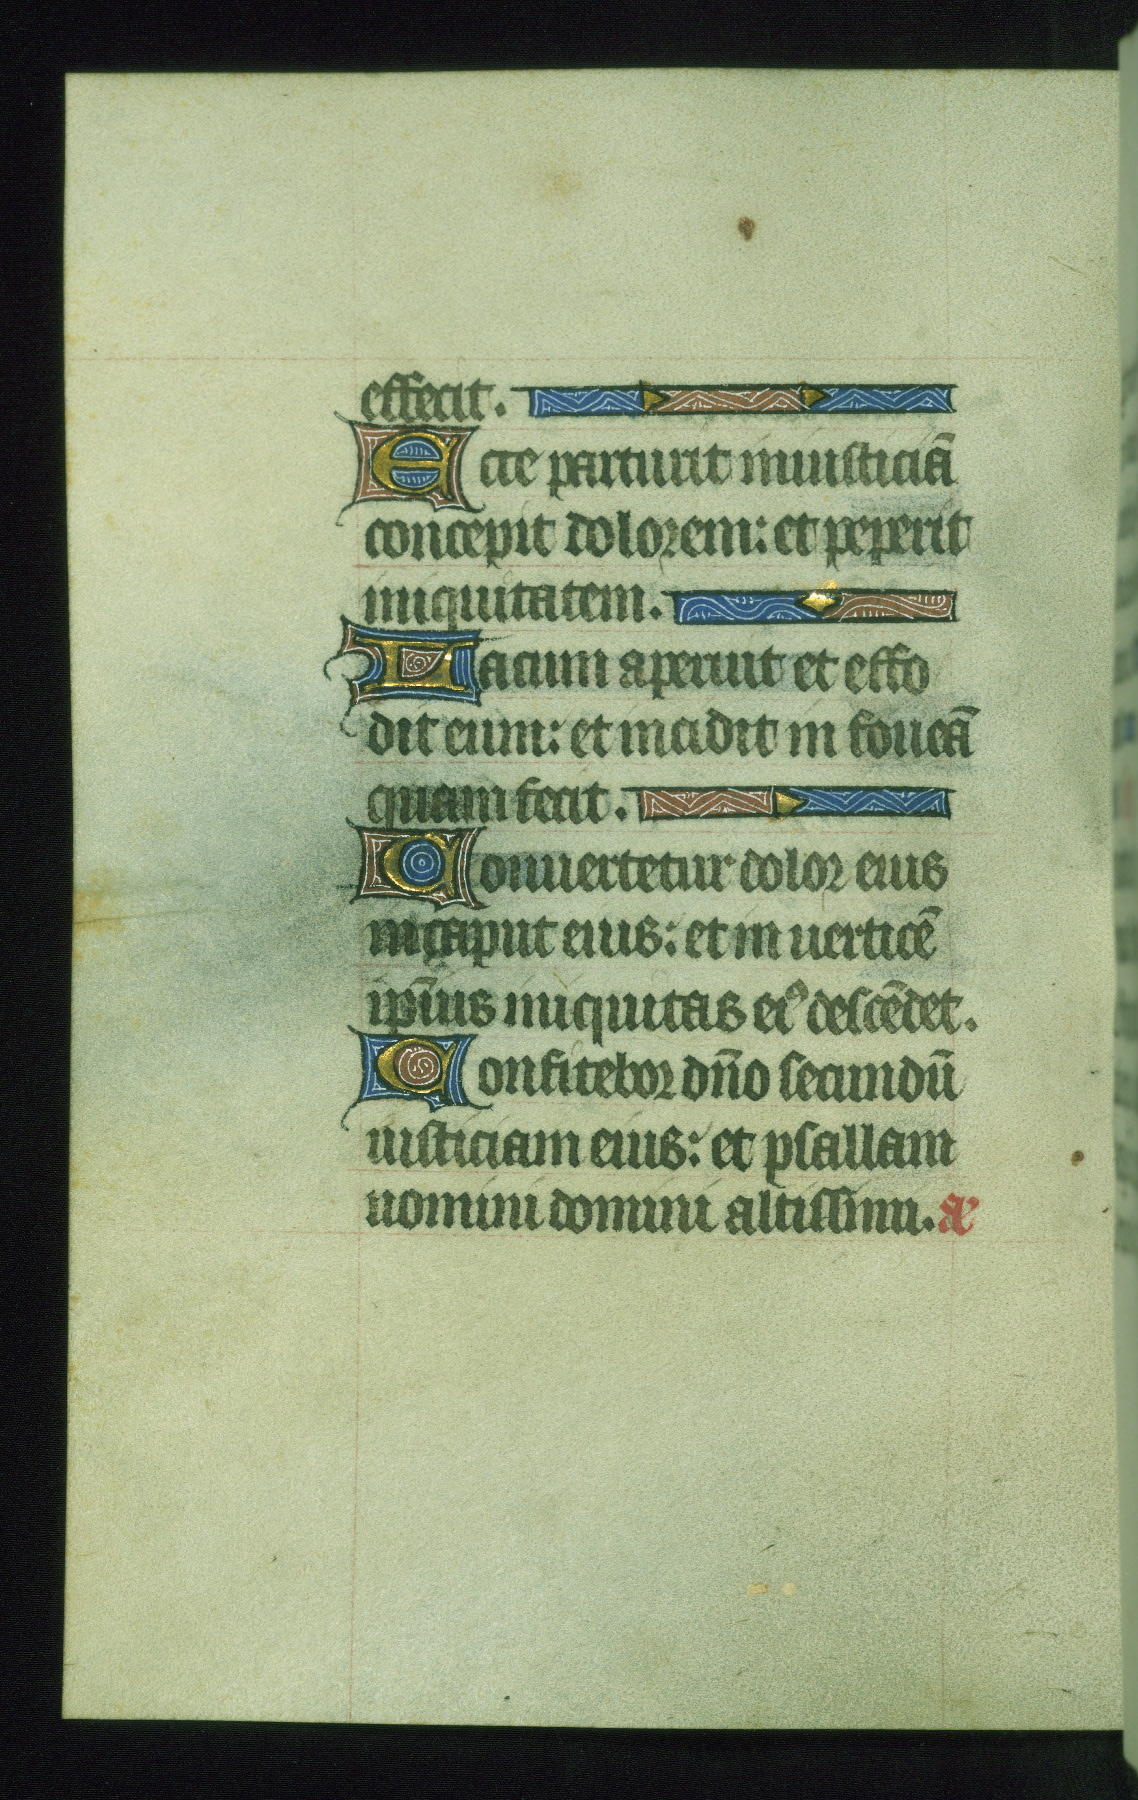 effecit.
Ecce parturit iniusticiā
concepit dolorem: et peperit
iniquitatem.
Lacum aperuit et effo
dit eum: et incidit in foueā
quam fecit.
Conuertetur dolor eius
in caput eius: et in uerticē
ip̄ius iniquitas eiꝰ descēdet.
Confitebor dn̄o secundū
iusticiam eius: et psallam
nomini domini altissimi. a